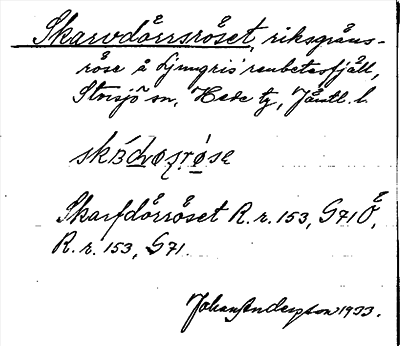 Skarvdörrsröset, riksgräns-
röse å Ljungris' renbetesfjäll,
Storsjö sn, Hede tg, Jämtl. l.
Skarfdörröset R. r. 153, G71 Ö,
R. r. 153, G71.
Johan Anderzon 1933.